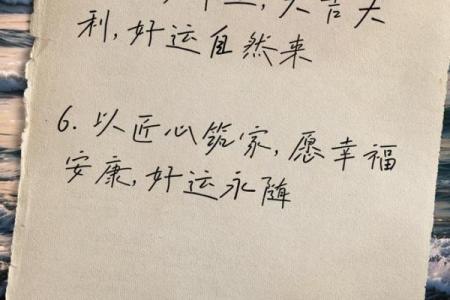 大吉大
利,好运自然来
6. 以匠心筑家,愿幸福
安康,好运永随